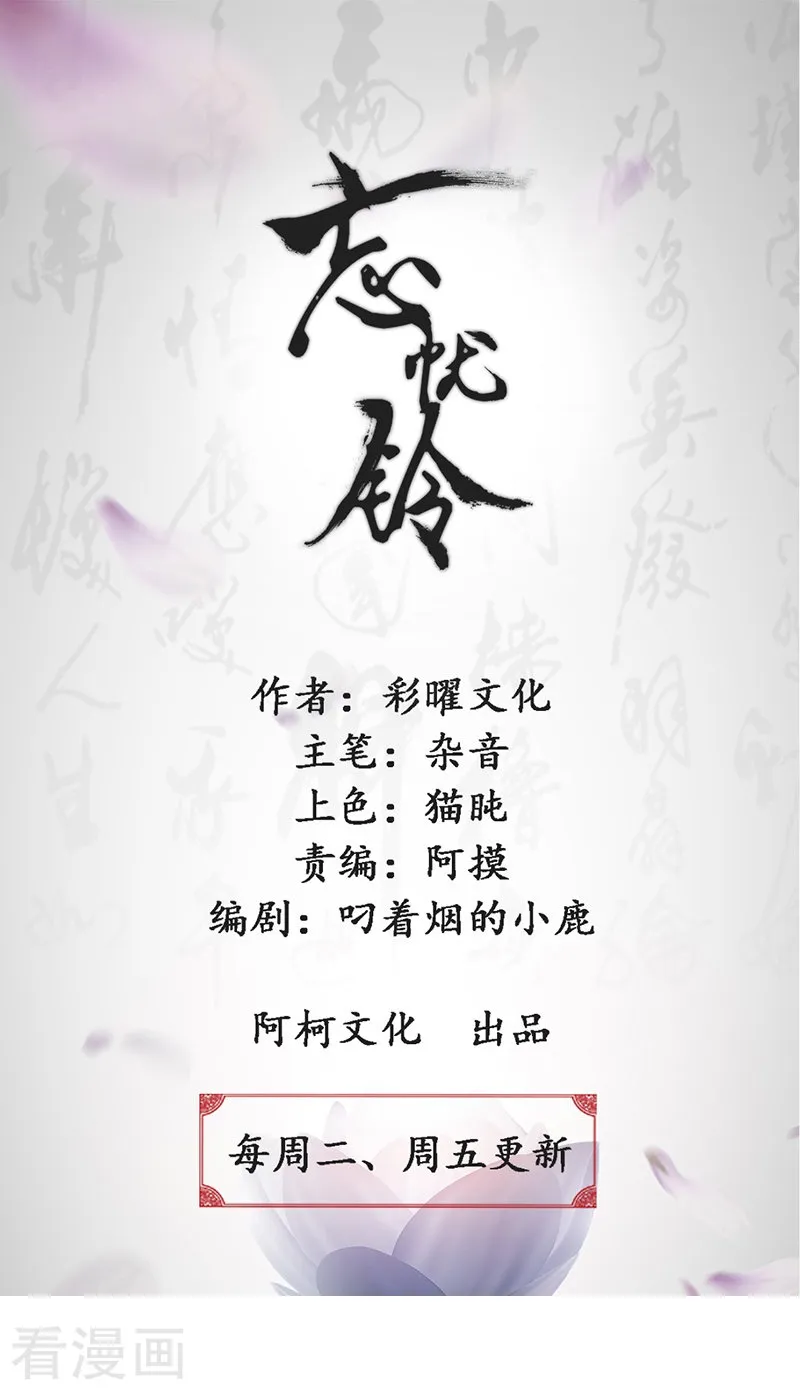 忘
忧
铃
作者：彩曜文化
主笔：杂音
上色：猫盹
责编：阿摸
编剧：叼着烟的小鹿
阿柯文化　出品
每周二、周五更新
看漫画